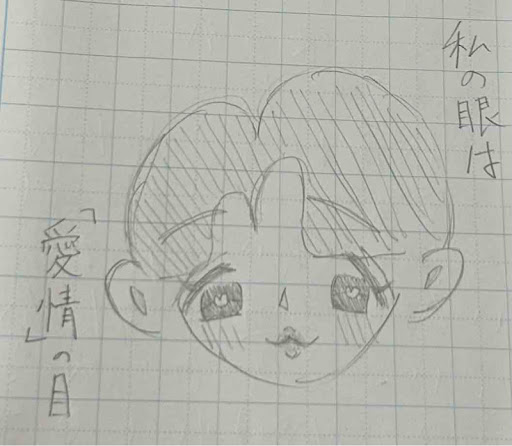 私の眼は
「愛情」の目